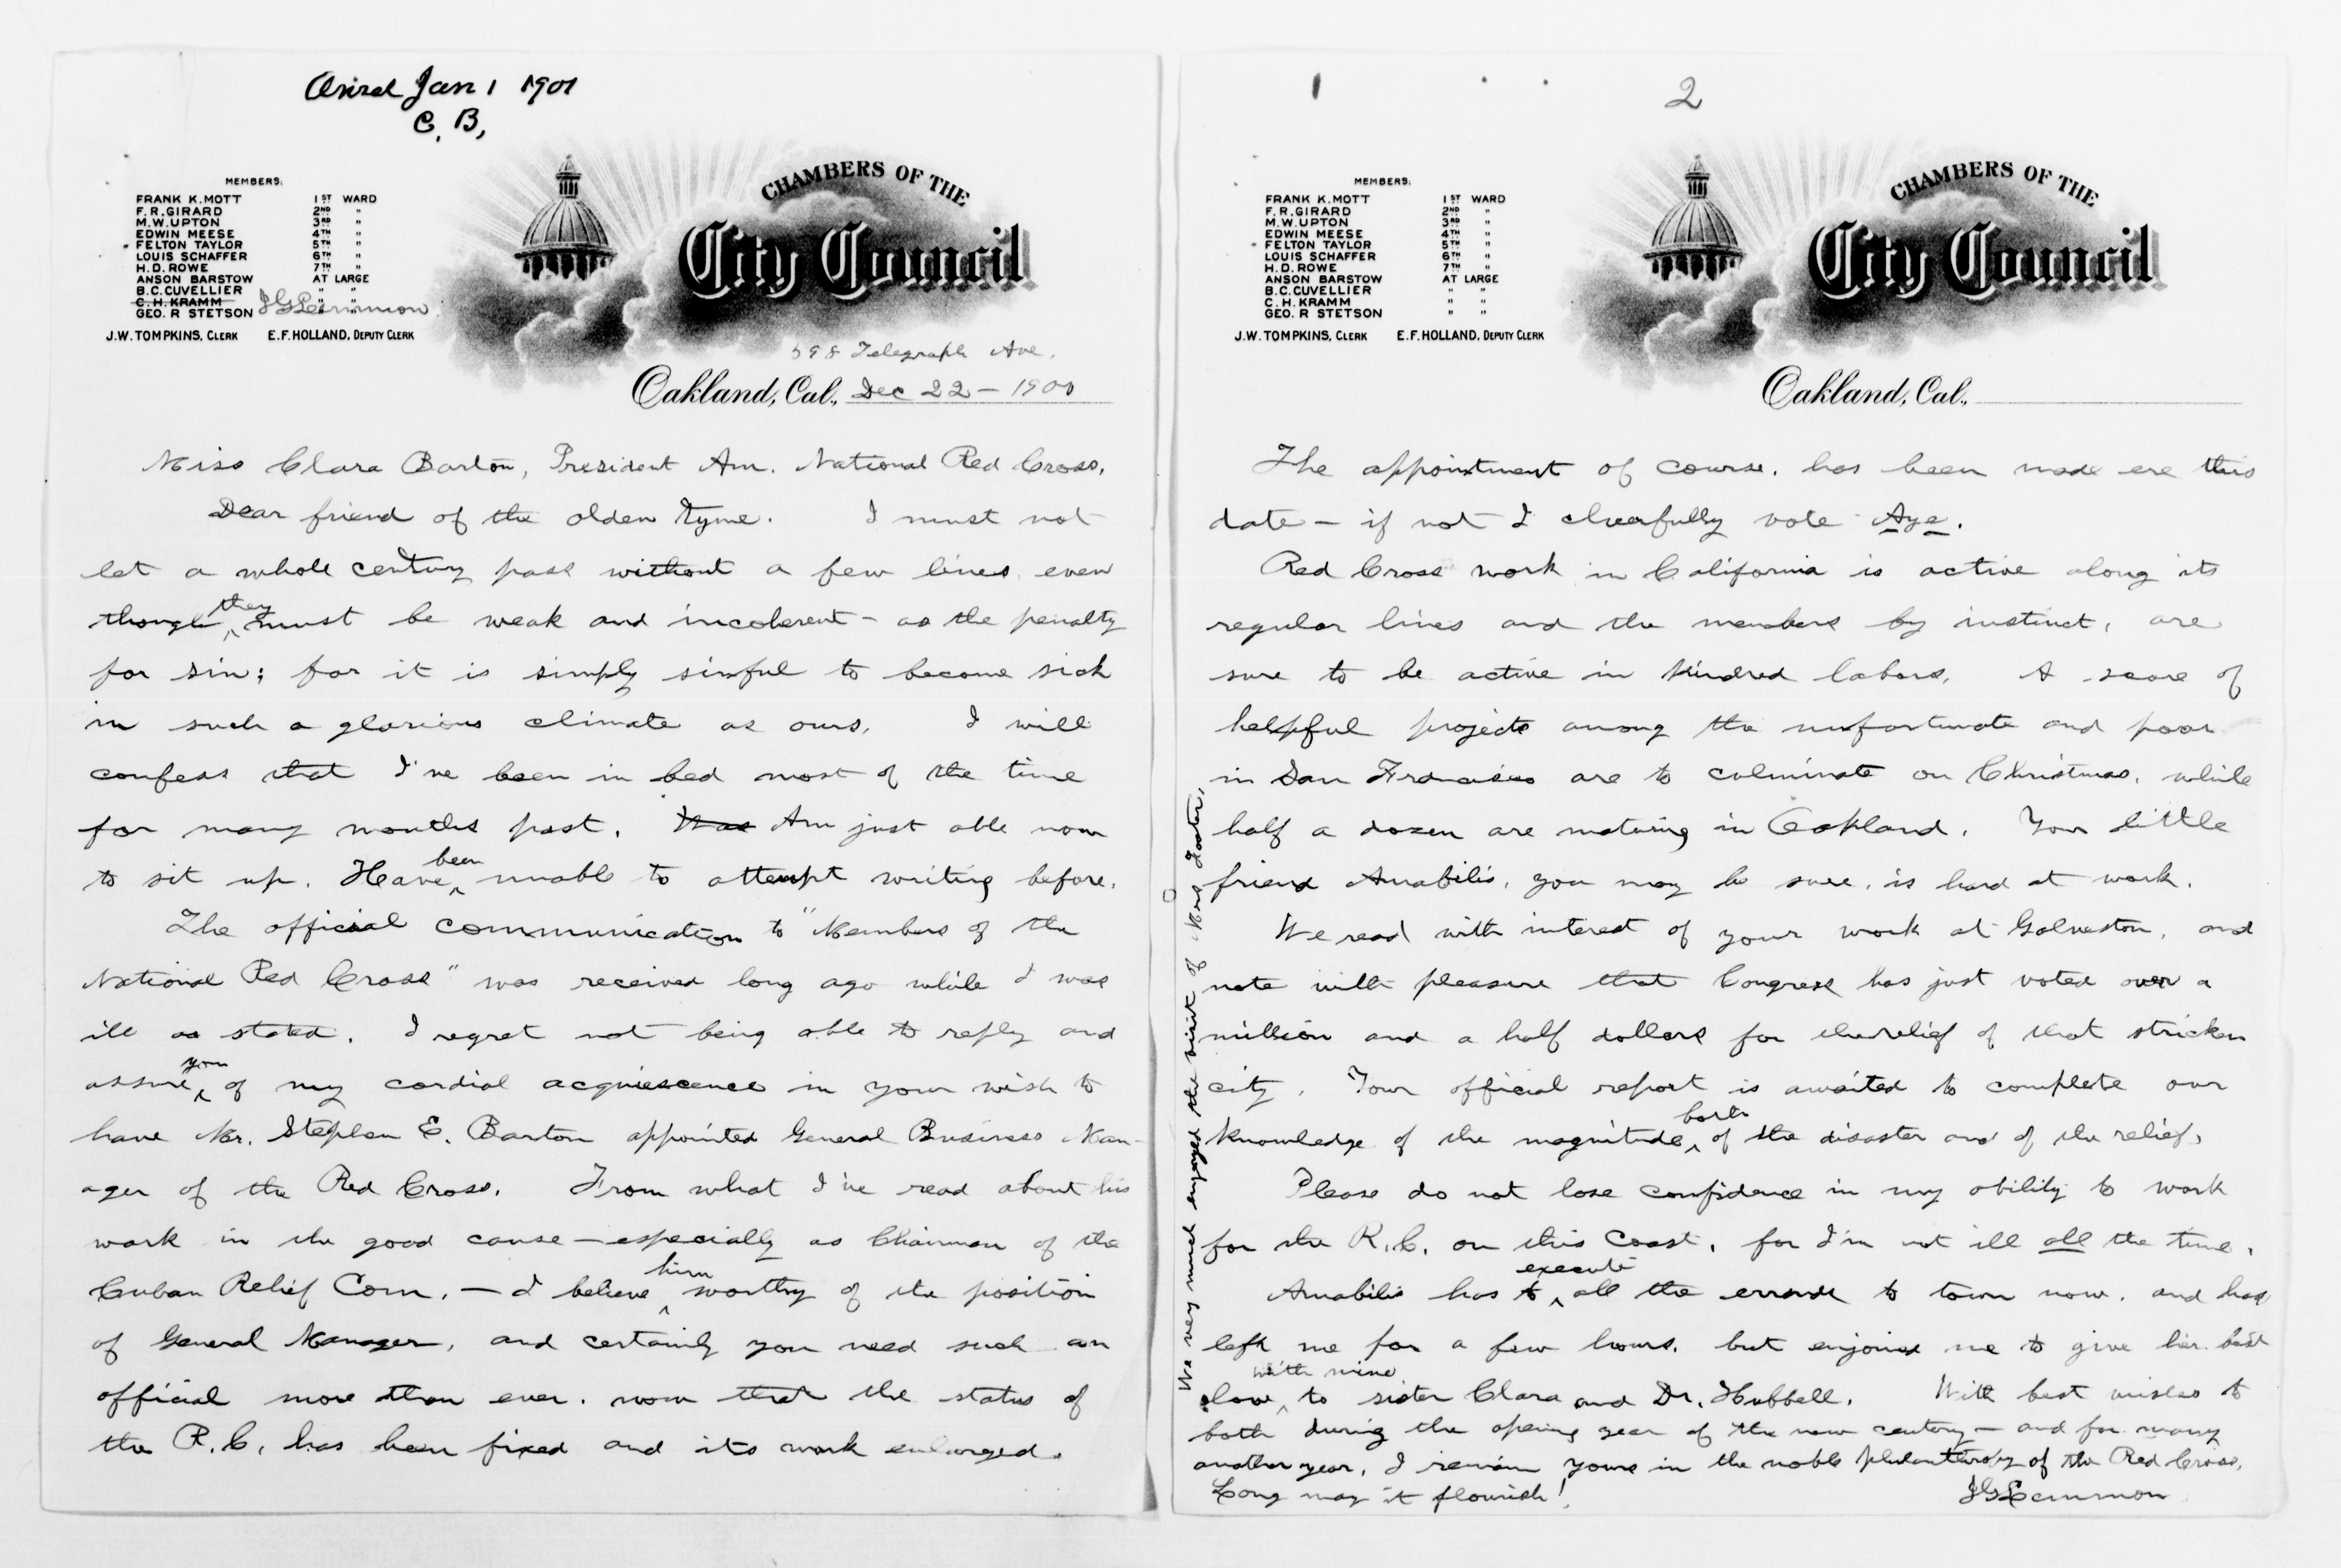 Ansd Jan 1 1901
C. B,
MEMBERS:
FRANK K. MOTT 1ST WARD
F. R. GIRARD 2ND "
M. W. UPTON 3RD "
EDWIN MEESE 4TH "
FELTON TAYLOR 5TH "
LOUIS SCHAFFER 6TH "
H. D. ROWE 7TH "
ANSON BARSTOW AT LARGE
B. C. CUVELLIER " "
C. H. KRAMM JGLemmon " "
GEO. R STETSON " "
J. W. TOMPKINS, CLERK E. F. HOLLAND, DEPUTY CLERK
CHAMBERS OF THE
City Council
598 Telegraph Ave.
Oakland, Cal., Dec 22 - 1900
Miss Clara Barton, President Am. National Red Cross,
Dear friend of the olden tyme. I must not
let a whole century pass without a few lines, even
though they must be weak and incoherent - as the penalty
for sin; for it is simply sinful to become sick
in such a glorious climate as ours. I will
confess that I've been in bed most of the time
for many months past. Was Am just able now
to sit up. Have been unable to attempt writing before.
The official communication to "Members of the
National Red Cross" was received long ago while I was
ill as stated. I regret not being able to reply and
assure you of my cordial acquiescence in your wish to
have Mr. Stephen E. Barton appointed General Business Man-
ager of the Red Cross. From what I've read about his
work in the good cause - especially as Chairman of the
Cuban Relief Com. - I believe him worthy of the position
of General Manager, and certainly you need such an
official more than ever, now that the status of
the R. C. has been fixed and its work enlarged.
2
MEMBERS:
FRANK K. MOTT 1ST WARD
F. R. GIRARD 2ND "
M. W. UPTON 3RD "
EDWIN MEESE 4TH "
FELTON TAYLOR 5TH "
LOUIS SCHAFFER 6TH "
H. D. ROWE 7TH "
ANSON BARSTOW AT LARGE
B. C. CUVELLIER " "
C. H. KRAMM " "
GEO. R STETSON " "
J. W. TOMPKINS, CLERK E. F. HOLLAND, DEPUTY CLERK
CHAMBERS OF THE
City Council
Oakland, Cal.,
The appointment of course, has been made ere this
date - if not I cheerfully vote Aye.
Red Cross work in California is active along its
regular lines and the members by instinct, are
sure to be active in kindred labors. A score of
helpful projects among the unfortunate and poor
in San Francisco are to culminate on Christmas, while
half a dozen are maturing in Oakland. Your little
friend Amabilis, you may be sure, is hard at work.
We read with interest of your work at Galveston, and
note with pleasure that Congress has just voted over a
million and a half dollars for the relief of that stricken
city. Your official report is awaited to complete our
knowledge of the magnitude both of the disaster and of the relief.
Please do not lose confidence in my ability to work
for the R. C. on this Coast, for I'm not ill all the time.
Amabilis has to execute all the errands to town now, and has
left me for a few hours, but enjoined me to give her best
love with mine to sister Clara and Dr. Hubbell. With best wishes to
both during the opening year of the new century - and for many
another year, I remain yours in the noble philanthropy of the Red Cross,
Long may it flourish! JGLemmon
We very much enjoyed the visit of Mrs Foster,